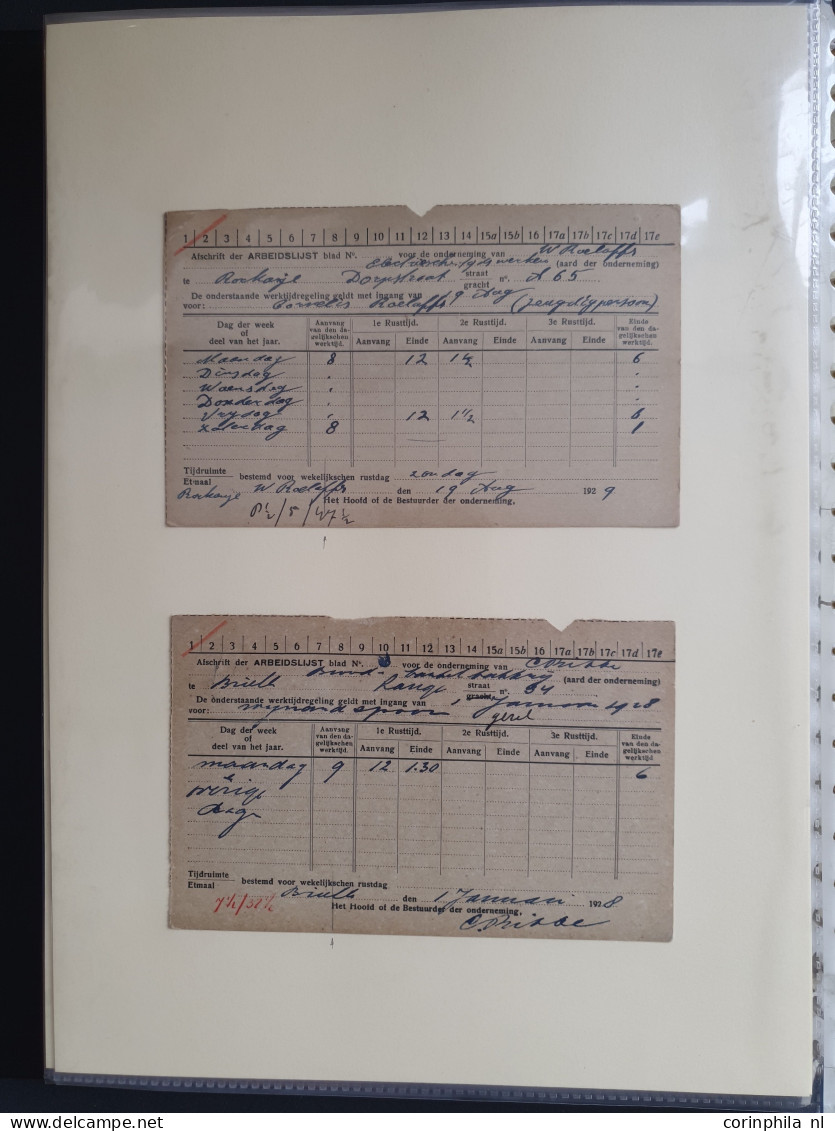 1 2 3 4 5 6 7 8 9 10 11 12 13 14 15a 15b 16 17a 17b 17c 17d 17e
Afschrift der ARBEIDSLIJST blad Nº. voor de onderneming van W Roelaffs
(aard der onderneming)
te Rockanje Dorpstraat straat gracht nº. A 65
De onderstaande werktijdregeling geldt met ingang van 19 Aug
voor: Cornelis Roelaffs (jeugdig persoon)
Dag der week of deel van het jaar. Aanvang van den dagelijkschen werktijd. 1e Rusttijd. 2e Rusttijd. 3e Rusttijd. Einde van den dagelijkschen werktijd.
Aanvang Einde Aanvang Einde Aanvang Einde
Maandag 8 12 1½ 6
Dinsdag
Woensdag
Donderdag
Vrijdag 12 1½ 6
Zaterdag 8 1
Tijdruimte Etmaal bestemd voor wekelijkschen rustdag zondag
Rockanje W Roelaffs den 19 Aug 1929
Het Hoofd of de Bestuurder der onderneming,
8½/5/47½
1 2 3 4 5 6 7 8 9 10 11 12 13 14 15a 15b 16 17a 17b 17c 17d 17e
Afschrift der ARBEIDSLIJST blad Nº. voor de onderneming van C Bribbe
(aard der onderneming)
te Brielle Lange straat gracht nº. 34
De onderstaande werktijdregeling geldt met ingang van 1 Januari 1928
voor: wijnand spoon gezel
Dag der week of deel van het jaar. Aanvang van den dagelijkschen werktijd 1e Rusttijd. 2e Rusttijd. 3e Rusttijd. Einde van den dagelijkschen werktijd
Aanvang Einde Aanvang Einde Aanvang Einde
maandag 9 12 1.30 6
&
overige
dag
Tijdruimte Etmaal bestemd voor wekelijkschen rustdag
Brielle den 1 Januari 1928
7½/52½
Het Hoofd of de Bestuurder der onderneming,
C Bribbe
corinphila nl